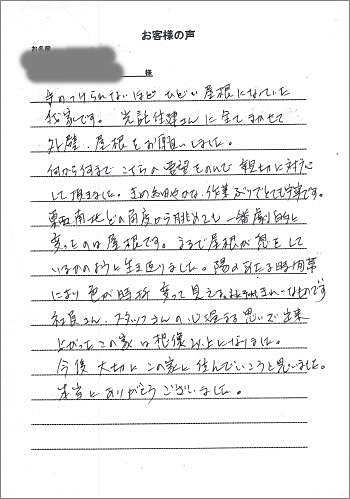 お客様の声
お名前
様
手のつけられないほどひどい屋根になっていた
我家です。 完計仕建さんに全てまかせて
外壁、屋根をお願いしました。
何から何までこちらの要望をのんで親切に対応
して頂きました。きめ細やかな作業ぶりでとても丁寧です。
東西南北どの角度から眺めても一番劇的に
変ったのは屋根です。まるで屋根が息をして
いるかのように生き返りました。陽のあたる時間帯
により色が時折変って見えるのもきれいなものです
社長さん、スタッフさんの心温まる思いで出来
上がったこの家は想像以上になりました。
今後大切にこの家に住んでいこうと思いました。
本当にありがとうございました。